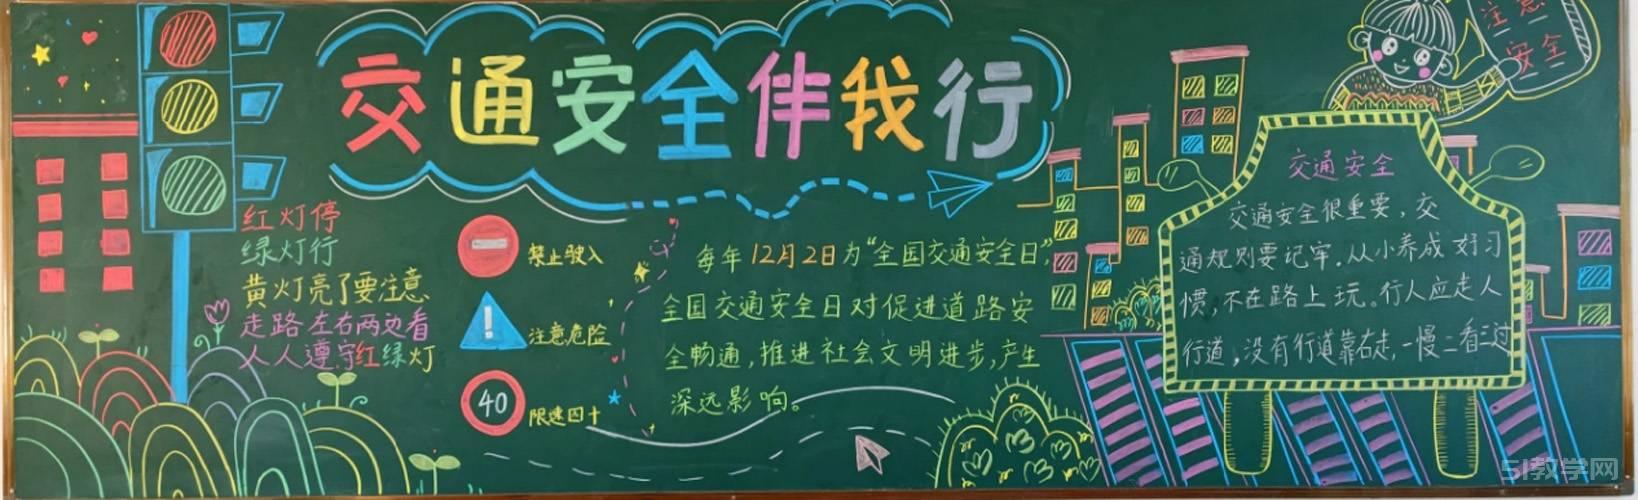 交通安全伴我行
红灯停
绿灯行
黄灯亮了要注意
走路左右两边看
人人遵守红绿灯
禁止驶入
注意危险
40
限速四十
每年12月2日为“全国交通安全日”,
全国交通安全日对促进道路安
全畅通,推进社会文明进步,产生
深远影响。
注意
安全
交通安全
交通安全很重要,交
通规则要记牢.从小养成好习
惯,不在路上玩。行人应走人
行道,没有行道靠右走,一慢二看三过
51教学网